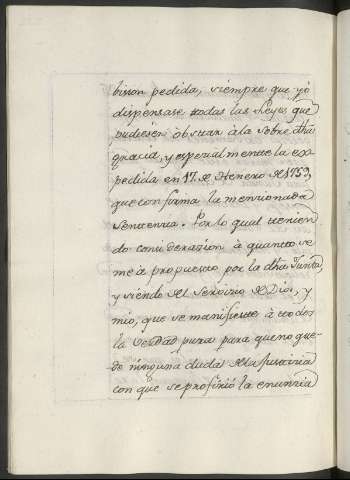 bission pedida, siempre que yo
dispensase todas las Leyes que
pudiesen obstar à la sobre dha
gracia, y especialmente la ex-
pedida en 17. de Henero de 1753,
que conforma la mencionada
Sentencia. Por lo qual tenien
do consideracion à quanto se
me à propuesto por la dha Junta,
y siendo del Servicio de Dios, y
mio, que se manifieste à todos
la Verdad pura para que no que-
de ninguna duda de la Justicia
con que se profirió la enunzia